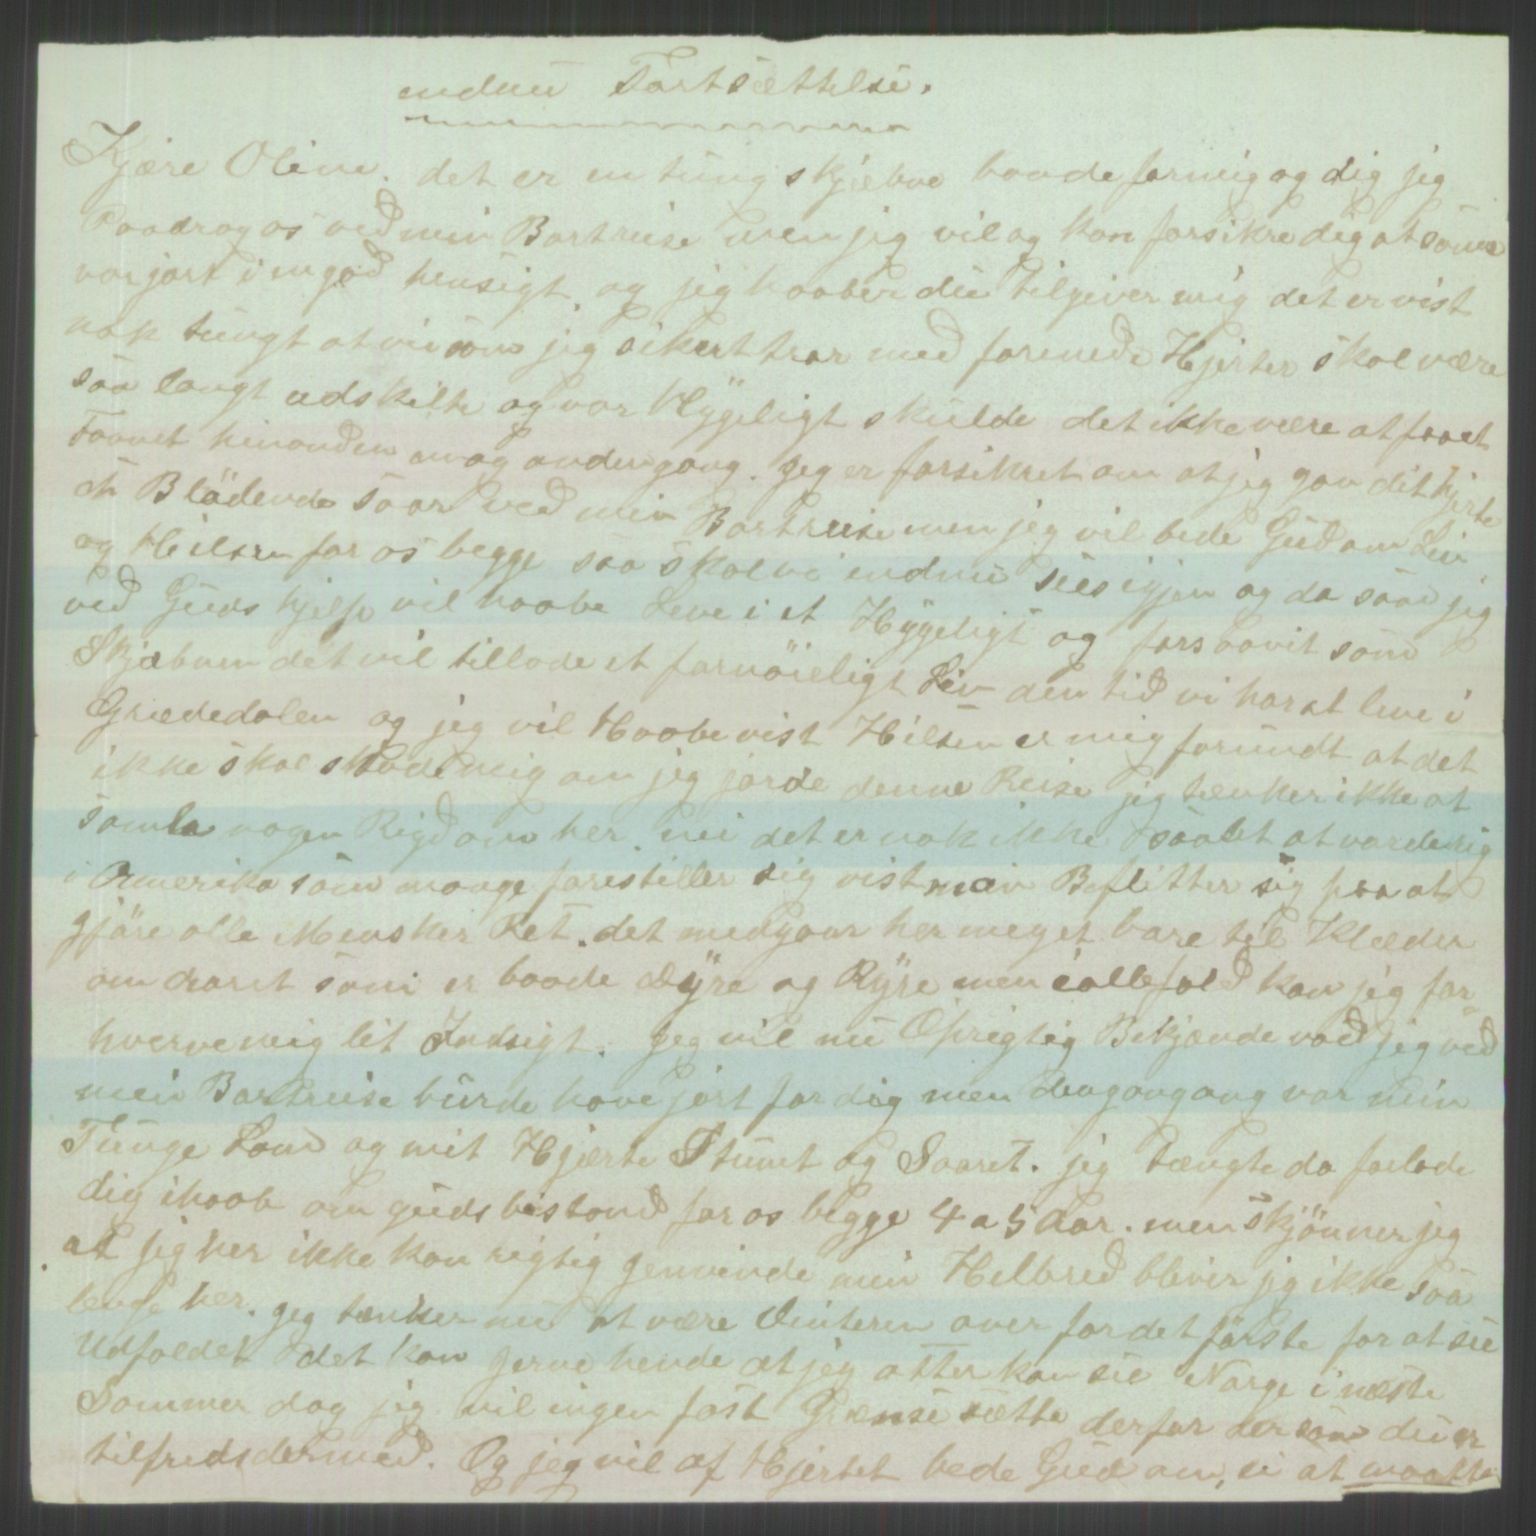 endnu Fortsættelse.
Kjære Oline. det er en tung skjæbne baade for mig og dig jeg
Paadrog os ved min Bortreise men jeg vil og kan forsikre dig at som
var jort i en god hensigt, og jeg haaber du tilgiver mig det er vist
nok tungt at vi som jeg sikert tror med forenede Hjerter skal være
saa langt adskilte og vor Hyggeligt skulde det ikke være at faaet
Favnet hinanden en og anden gang. Jeg er forsikret om at jeg gav dit hjerte
et Blödende saar ved min Bortreise men jeg vil bede Gud om Liv
og Helsen for os begge saa skal vi endnu sees igjen og da saa jeg
ved Guds hjelp vil haabe Leve i et Hyggeligt og forsaavit som
Skjæbnen det vil tillade et fornöieligt Liv den tid vi har at leve i
Grædedalen og jeg vil Haabe vist Hilsen er mig forundt at det
ikke skal skade mig om jeg jorde denne Reise jeg tænker ikke at
samle nogen Rigdom her, nei det er nok ikke saalet at vorde rig
i Amerika som mange forestiller sig vist man Beflitter sig paa at
gjöre alle Mensker Ret. det medgaar her meget bare til Klæder
om aaret som er baade Dyre og Ryre men i allefald kan jeg for-
hverve mig lit Indsigt. Jeg vil nu Oprigtig Bekjænde vad jeg ved
min Bortreise burde have jort for dig men dengangang var min
Tunge Lam og mit Hjærte Stumt og Saaret. jeg tængte da forlade
dig ihaab om guds bistand for os begge 4 a 5 Aar. men skjönner jeg
at jeg her ikke kan rigtig genvinde min Helbred bliver jg ikke saa
lenge her. jeg tænker nu at være Vinteren over for det förste for at see
Udfaldet det kan jerne hende at jeg atter kan see Norge i næste
Sommer dog jeg vil ingen fast Grænse sætte derfor dersom du er
tilfreds dermed. Og jeg vil af Hjertet bede Gud om, vi at maatte